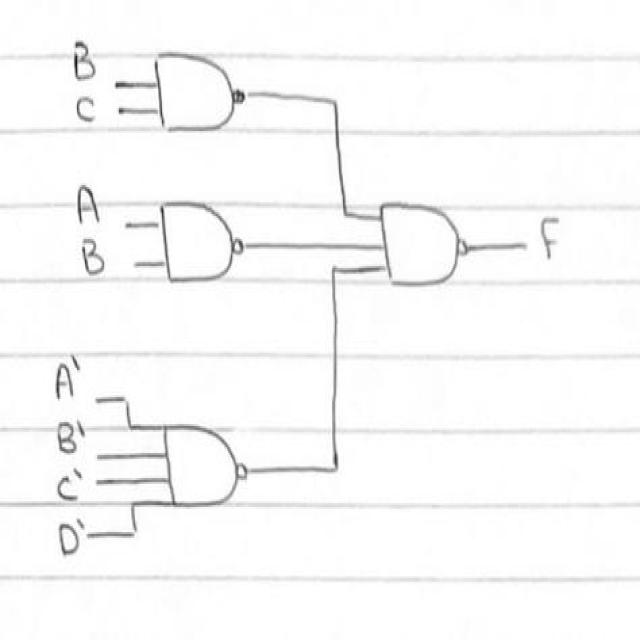 B
C
A
B
F
A'
B'
C'
D'